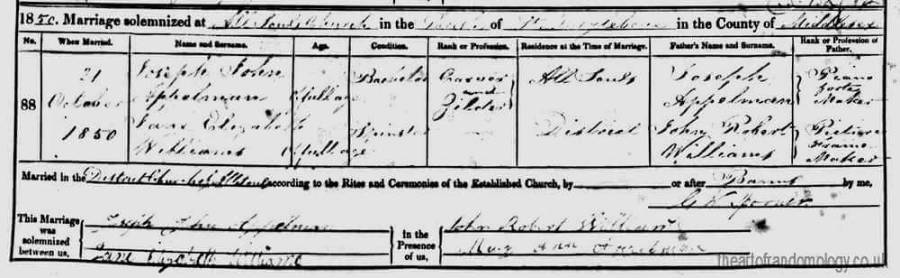 1850. Marriage solemnized at All Souls Church in the of St Marylebone in the County of Middlesex
No. When Married. Name and Surname. Age. Condition. Rank or Profession. Residence at the Time of Marriage. Father's Name and Surname. Rank or Profession of Father.
88
21 October 1850
Joseph John Appelman Full age Bachelor Carver and Gilder All Souls Joseph Appelman Piano forte Maker
Jane Elizabeth Williams Full age Spinster — District John Robert Williams Picture Frame Maker
Married in the District Church of All Souls according to the Rites and Ceremonies of the Established Church, by or after Banns by me,
This Marriage was solemnized between us, Joseph John Appelman
Jane Elizabeth Williams
in the Presence of us, John Robert Williams
Mary Ann
theartofrandomology.co.uk